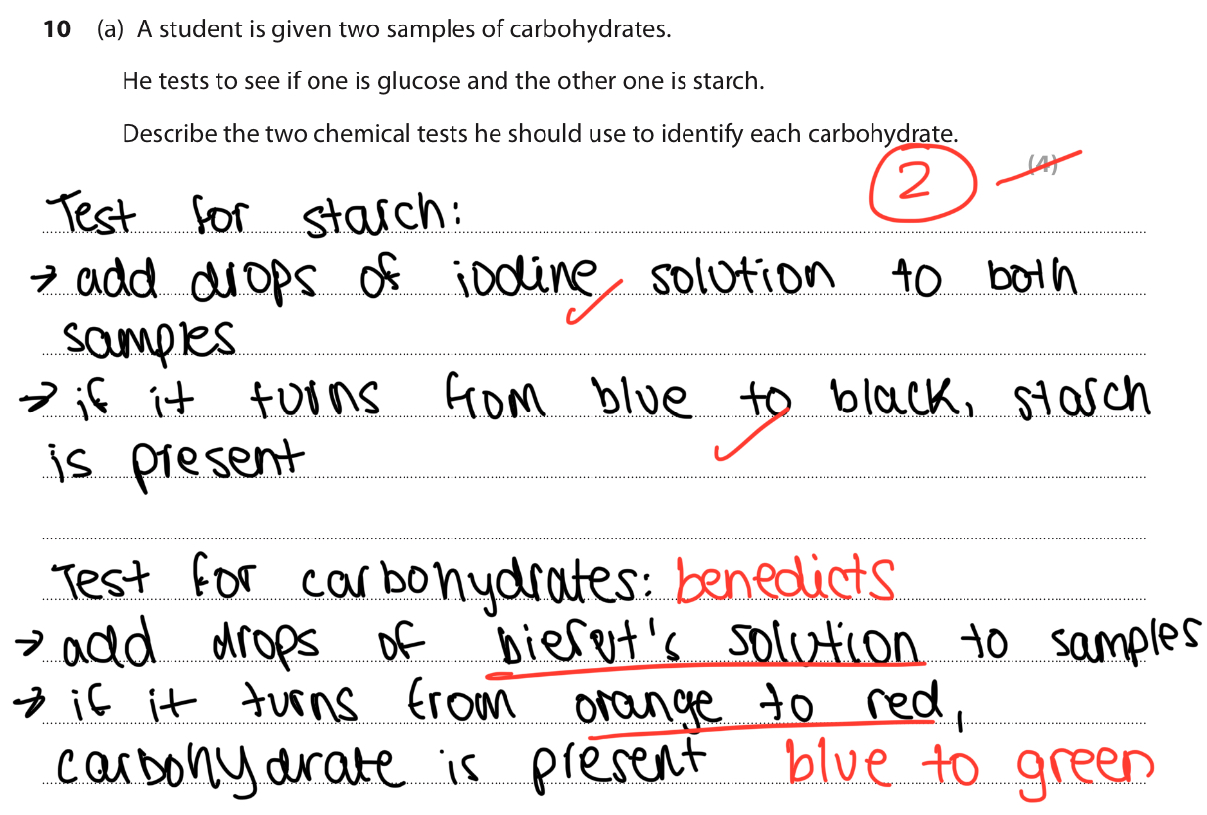 10 (a) A student is given two samples of carbohydrates.
He tests to see if one is glucose and the other one is starch.
Describe the two chemical tests he should use to identify each carbohydrate.
2 (4)
Test for starch:
→ add drops of iodine solution to both
samples
→ if it turns from blue to black, starch
is present
Test for carbohydrates: benedicts
→ add drops of bieret's solution to samples
→ if it turns from orange to red,
carbohydrate is present blue to green